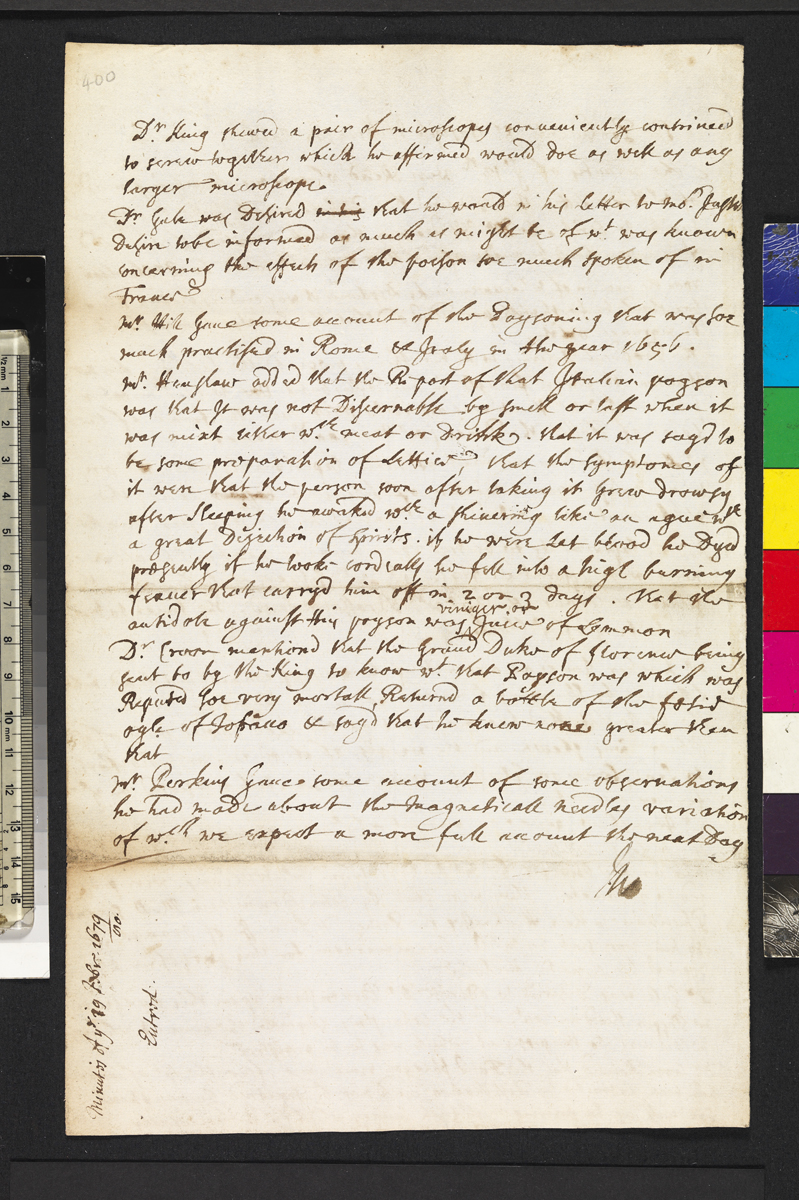 400
Dr King shewed a pair of microscopes conveniently contrived
to screw together which he affirmed would doe as well as any
larger microscope.
Dr Gale was Desired that he would in his letter to mr. Justel
Desire to be informed as much as might be of wt was known
concerning the effects of the poison soe much spoken of in
France
mr Hill Gave some account of the Poysoning that was soe
much practised in Rome & Italy in the year 1656.
mr. Henshaw added that the Report of that Italian poyson
was that It was not Discernable by smell or tast when it
was mixt either wth meat or Drink. that it was sayd to
be some preparation of Lettice, that the symptomes of
it were that the person soon after taking it Grew drowsy
after Sleeping he awaked wth a shivering like an ague wth
a great Dejection of spirits. if he were Let blood he Dyed
presently if he tooke cordialls he fell into a high burning
feauer that carryd him off in 2 or 3 days. that the
antidote against this poyson was viniger or Juice of Lemmon
Dr Croon mentiond that the Grand Duke of florence being
sent to by the King to know wt that Poyson was which was
Reputed soe very mortall, Returnd a bottle of the fœtid
oyle of Tobacco & sayd that he knew none greater then
that
mr Perkins Gave some account of some observations
he had made about the magneticall needles variation
of wch we expect a more full account the next Day
Minutes of ye 19 Febr. 1679/80.
Entred.